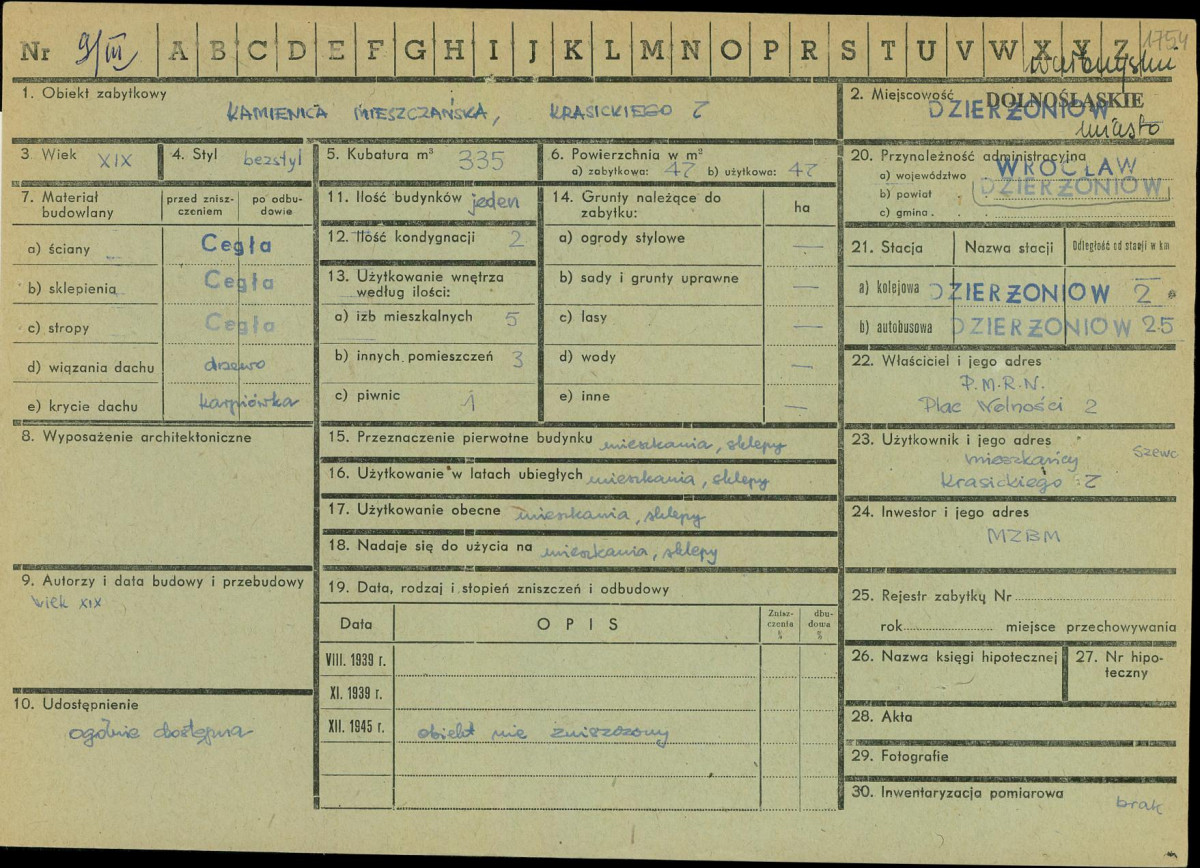 Nr 9/III A B C D E F G H I J K L M N O P R S T U V W X Y Z 1754
1. Obiekt zabytkowy
KAMIENICA MIESZCZAŃSKA, KRASICKIEGO 7
2. Miejscowość DOLNOŚLĄSKIE
DZIERŻONIÓW
miasto
3. Wiek XIX
4. Styl bezstyl
5. Kubatura m³ 335
6. Powierzchnia w m²
a) zabytkowa: 47 b) użytkowa: 47
7. Materiał budowlany
przed zniszczeniem
po odbudowie
a) ściany Cegła
b) sklepienia Cegła
c) stropy Cegła
d) wiązania dachu drzewo
e) krycie dachu karpiówka
8. Wyposażenie architektoniczne
9. Autorzy i data budowy i przebudowy
wiek XIX
10. Udostępnienie
ogólnie dostępna
11. Ilość budynków jeden
12. Ilość kondygnacji 2
13. Użytkowanie wnętrza
według ilości:
a) izb mieszkalnych 5
b) innych pomieszczeń 3
c) piwnic 1
14. Grunty należące do
zabytku:
ha
a) ogrody stylowe —
b) sady i grunty uprawne —
c) lasy —
d) wody —
e) inne —
15. Przeznaczenie pierwotne budynku mieszkania, sklepy
16. Użytkowanie w latach ubiegłych mieszkania, sklepy
17. Użytkowanie obecne mieszkania, sklepy
18. Nadaje się do użycia na mieszkania, sklepy
19. Data, rodzaj i stopień zniszczeń i odbudowy
Data OPIS Zniszczenia % dbudowa %
VIII. 1939 r.
XI. 1939 r.
XII. 1945 r. obiekt nie zniszczony
20. Przynależność administracyjna
a) województwo WROCŁAW
b) powiat DZIERŻONIÓW
c) gmina
21. Stacja Nazwa stacji Odległość od stacji w km
a) kolejowa DZIERŻONIÓW 2
b) autobusowa DZIERŻONIÓW 2.5
22. Właściciel i jego adres
P.M.R.N.
Plac Wolności 2
23. Użytkownik i jego adres
mieszkańcy szewc
Krasickiego 7
24. Inwestor i jego adres
MZBM
25. Rejestr zabytku Nr
rok miejsce przechowywania
26. Nazwa księgi hipotecznej
27. Nr hipoteczny
28. Akta
29. Fotografie
30. Inwentaryzacja pomiarowa
brak